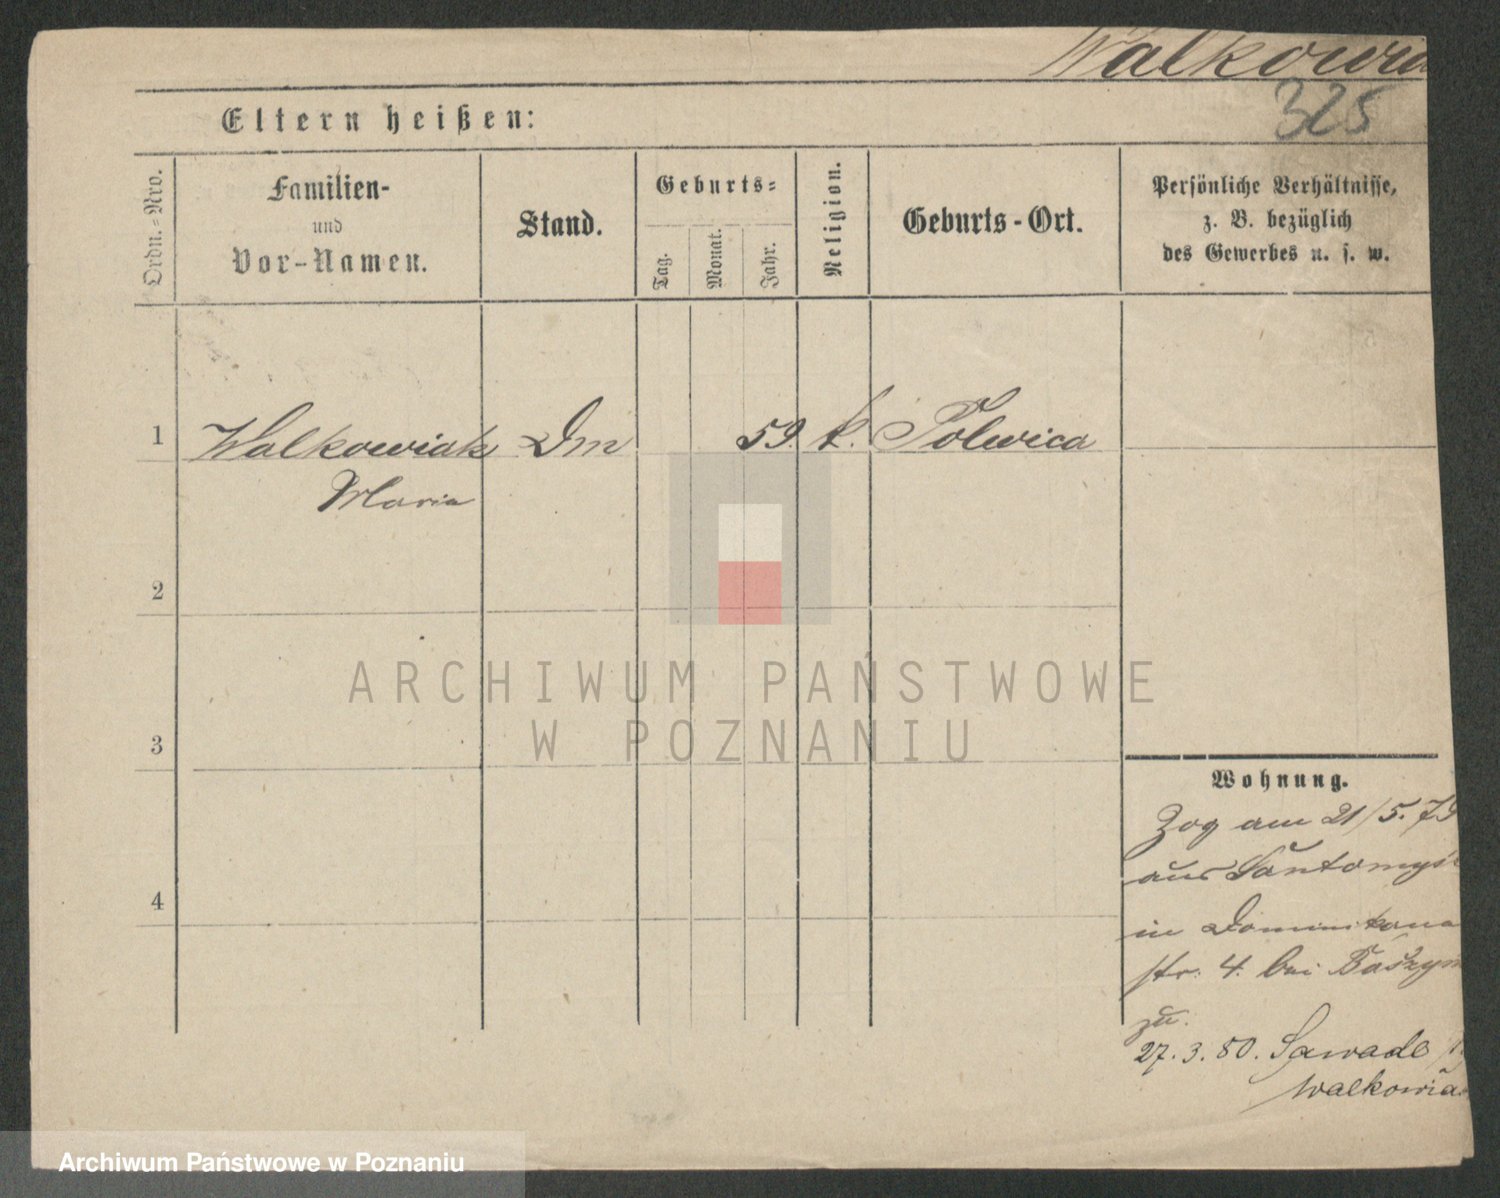 Walkowia
325
Eltern heißen:
Ordn.=Nro.
Familien-
und
Vor-Namen.
Stand.
Geburts=
Tag.
Monat.
Jahr.
Religion.
Geburts-Ort.
Persönliche Verhältnisse,
z. B. bezüglich
des Gewerbes u. s. w.
1 Walkowiak Dm 59. k. Polwica
Maria
2
3
4
ARCHIWUM PAŃSTWOWE
W POZNANIU
Wohnung.
Zog am 21/5. 79
aus Santomys
in Dominikana
str. 4. bei
zu.
27. 3. 80. Sawade
Walkowia
Archiwum Państwowe w Poznaniu